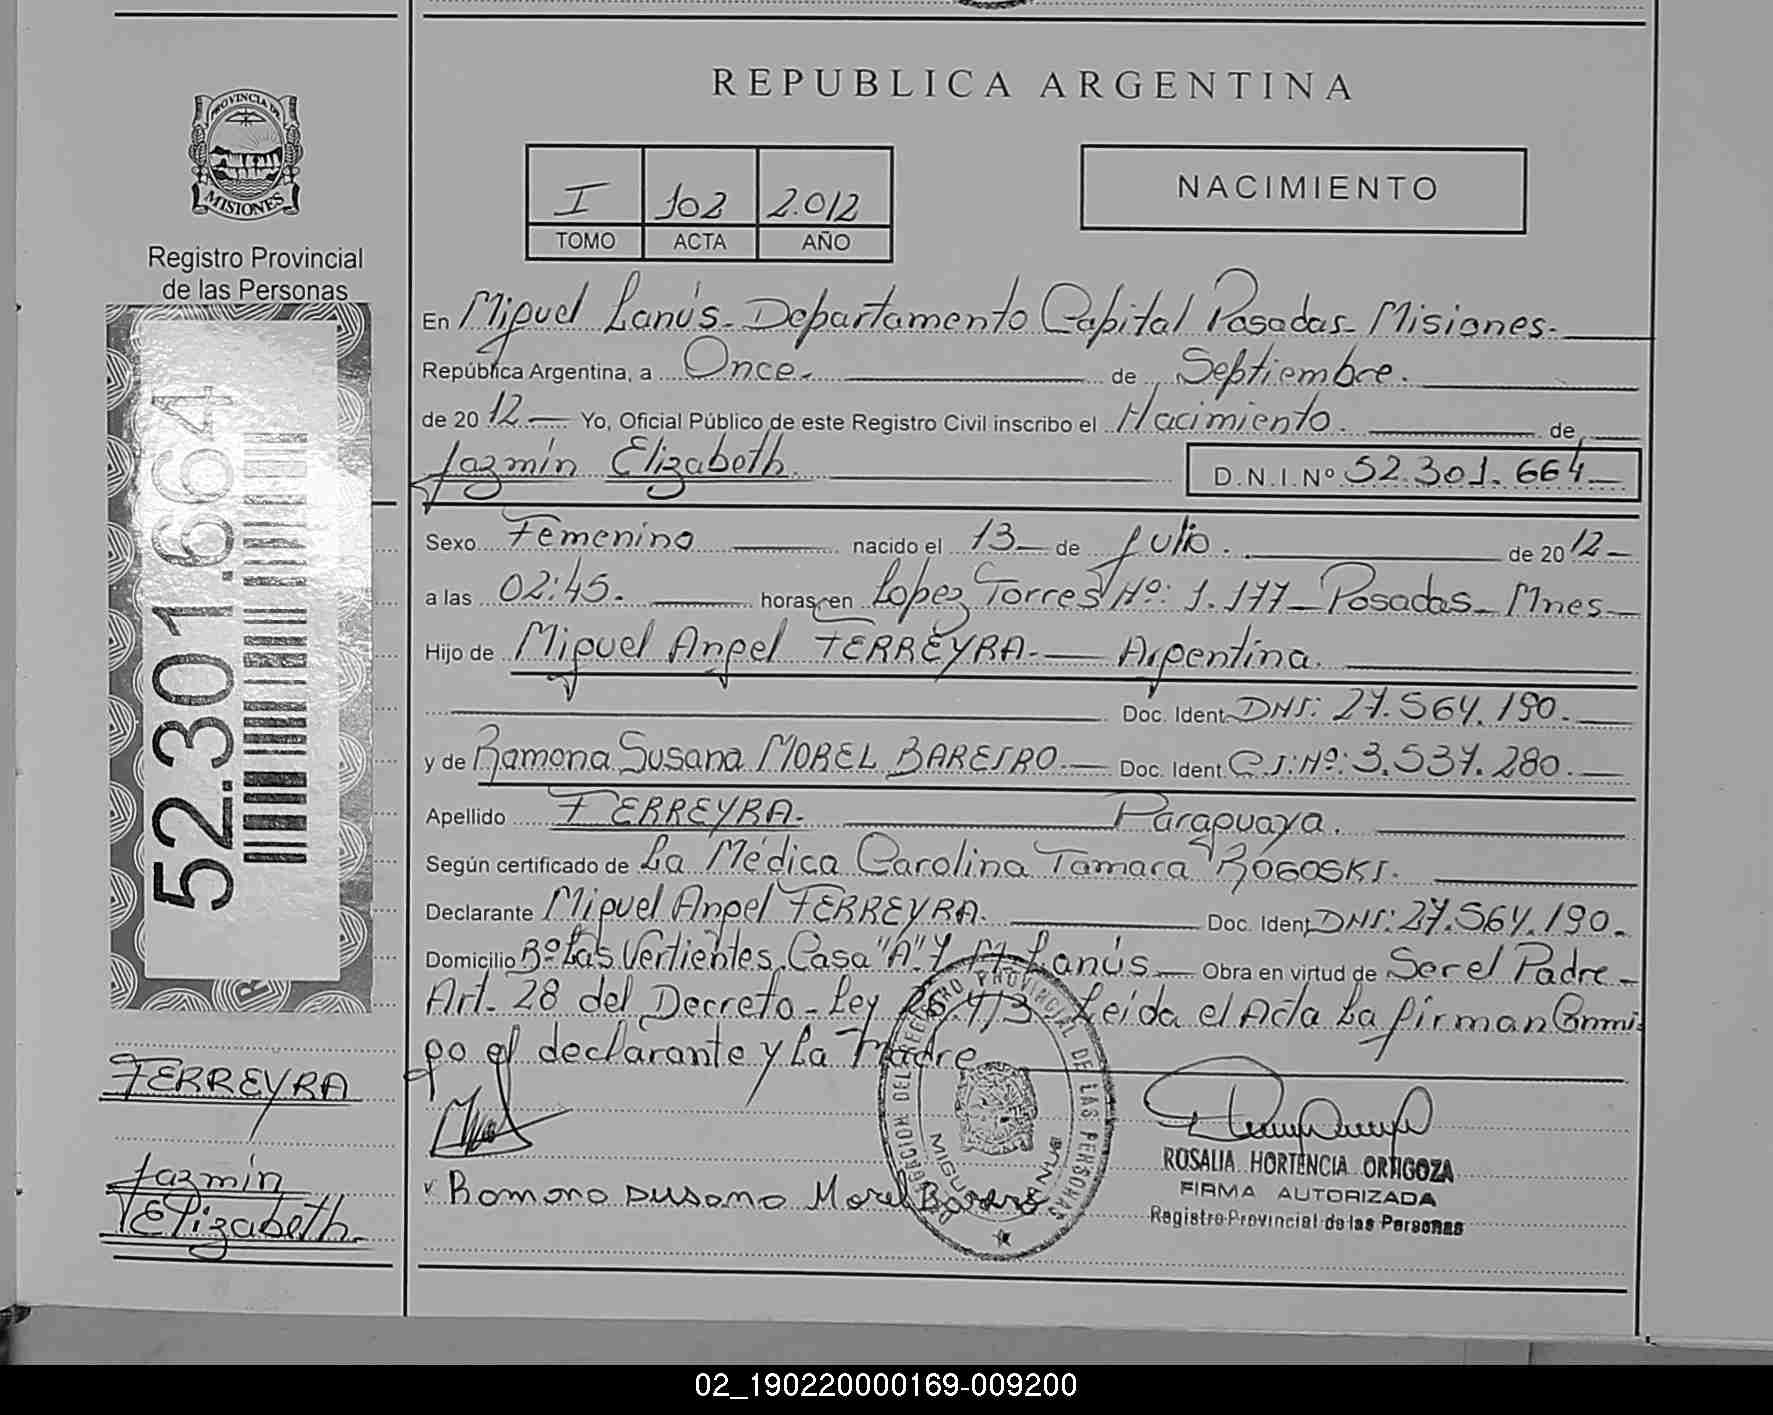 REPUBLICA ARGENTINA
PROVINCIA DE
MISIONES
Registro Provincial
de las Personas
I 102 2.012
TOMO ACTA AÑO
NACIMIENTO
52.301.664
En Miguel Lanús. Departamento Capital Posadas. Misiones.
República Argentina, a Once. de Septiembre.
de 20 12 Yo, Oficial Público de este Registro Civil inscribo el Nacimiento. de
Jazmín Elizabeth. D.N.I.Nº 52.301.664
Sexo Femenino nacido el 13 de Julio. de 20 12
a las 02:45. horas, en Lopez Torres Nº: 1.177 Posadas. Mnes
Hijo de Miguel Angel FERREYRA. Argentina.
Doc. Ident. DNI: 27.564.190.
y de Ramona Susana MOREL BAREIRO. Doc. Ident. C.I:Nº: 3.537.280.
Apellido FERREYRA. Paraguaya.
Según certificado de La Médica Carolina Tamara ROGOSKI.
Declarante Miguel Angel FERREYRA. Doc. Ident. DNI: 27.564.190.
Domicilio Bº Las Vertientes, Casa "A" 7 M. Lanús Obra en virtud de Ser el Padre
Art. 28 del Decreto - Ley Leída el Acta La firman Conmi
go el declarante y La Madre
FERREYRA
Jazmín
Elizabeth.
ROSALIA HORTENCIA ORTIGOZA
FIRMA AUTORIZADA
Registro Provincial de las Personas
Romona Susana Morel Bareiro
02_190220000169-009200